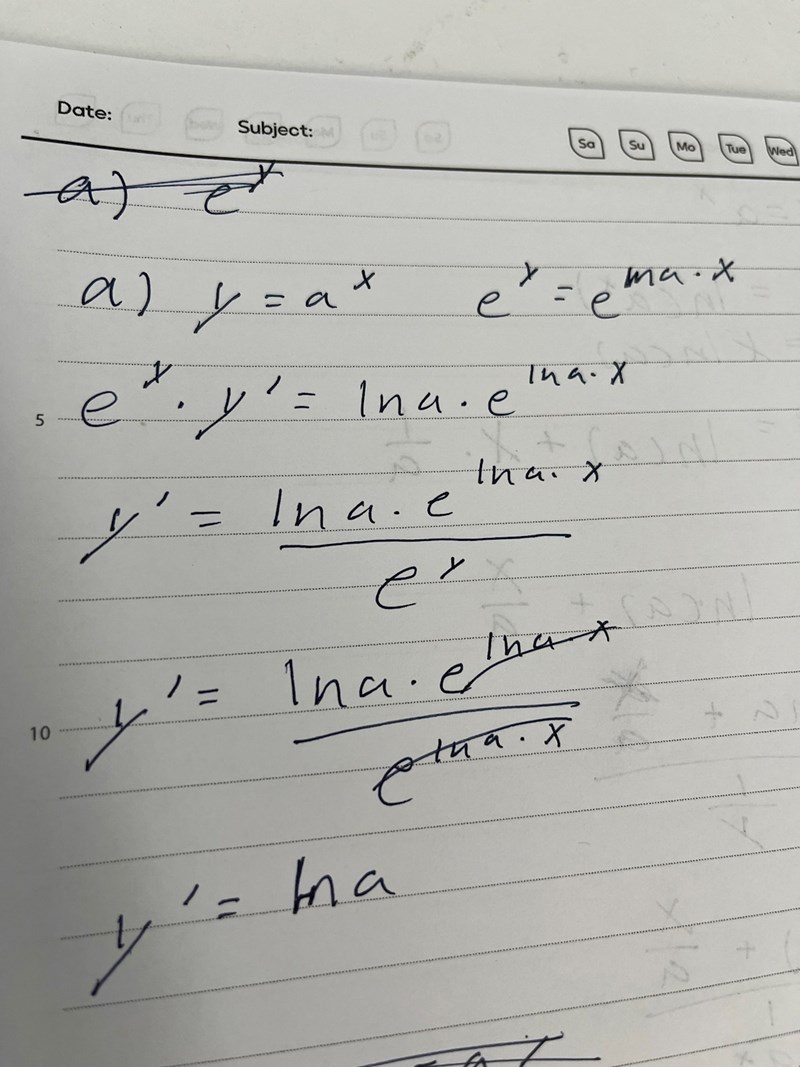 Date:
Subject:
Sa Su Mo Tue Wed
a) e^y
a) y = a^x e^y = e^{ln a · x}
5 e^y · y' = ln a · e^{ln a · x}
y' = \frac{ln a · e^{ln a · x}}{e^y}
10 y' = \frac{ln a · e^{ln a · x}}{e^{ln a · x}}
y' = ln a